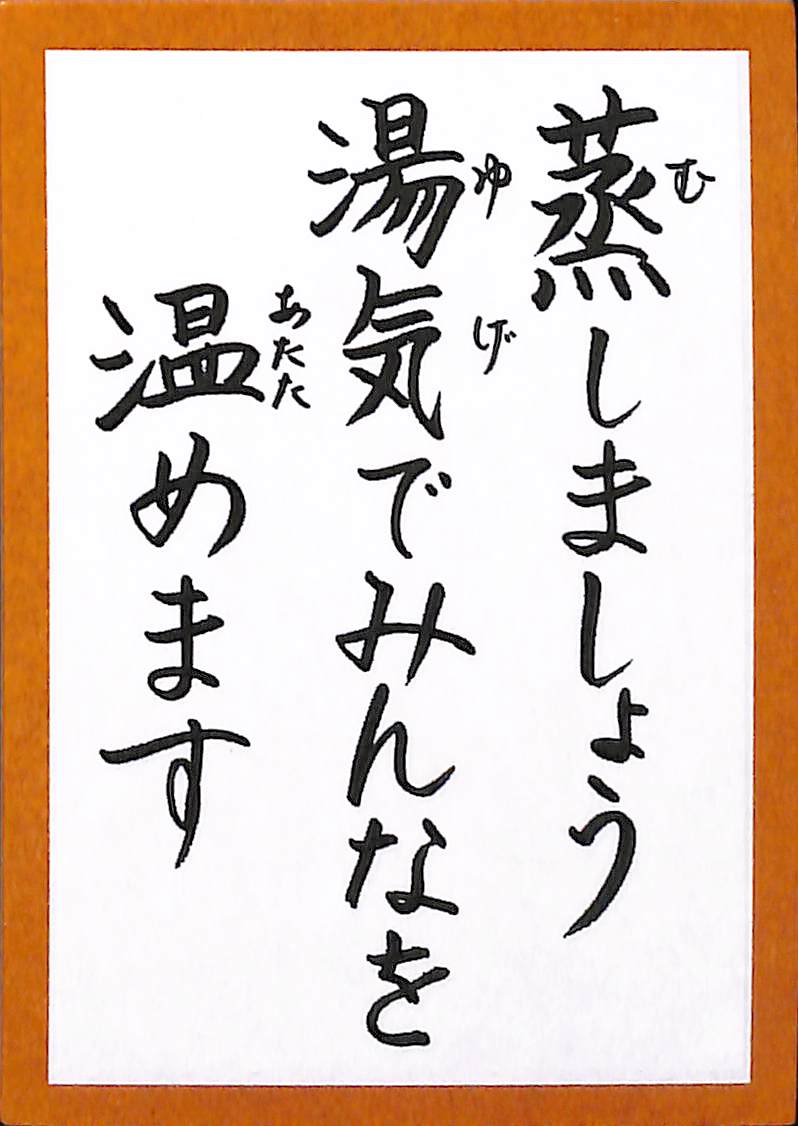 蒸しましょう
湯気でみんなを
温めます
む
ゆげ
あたた